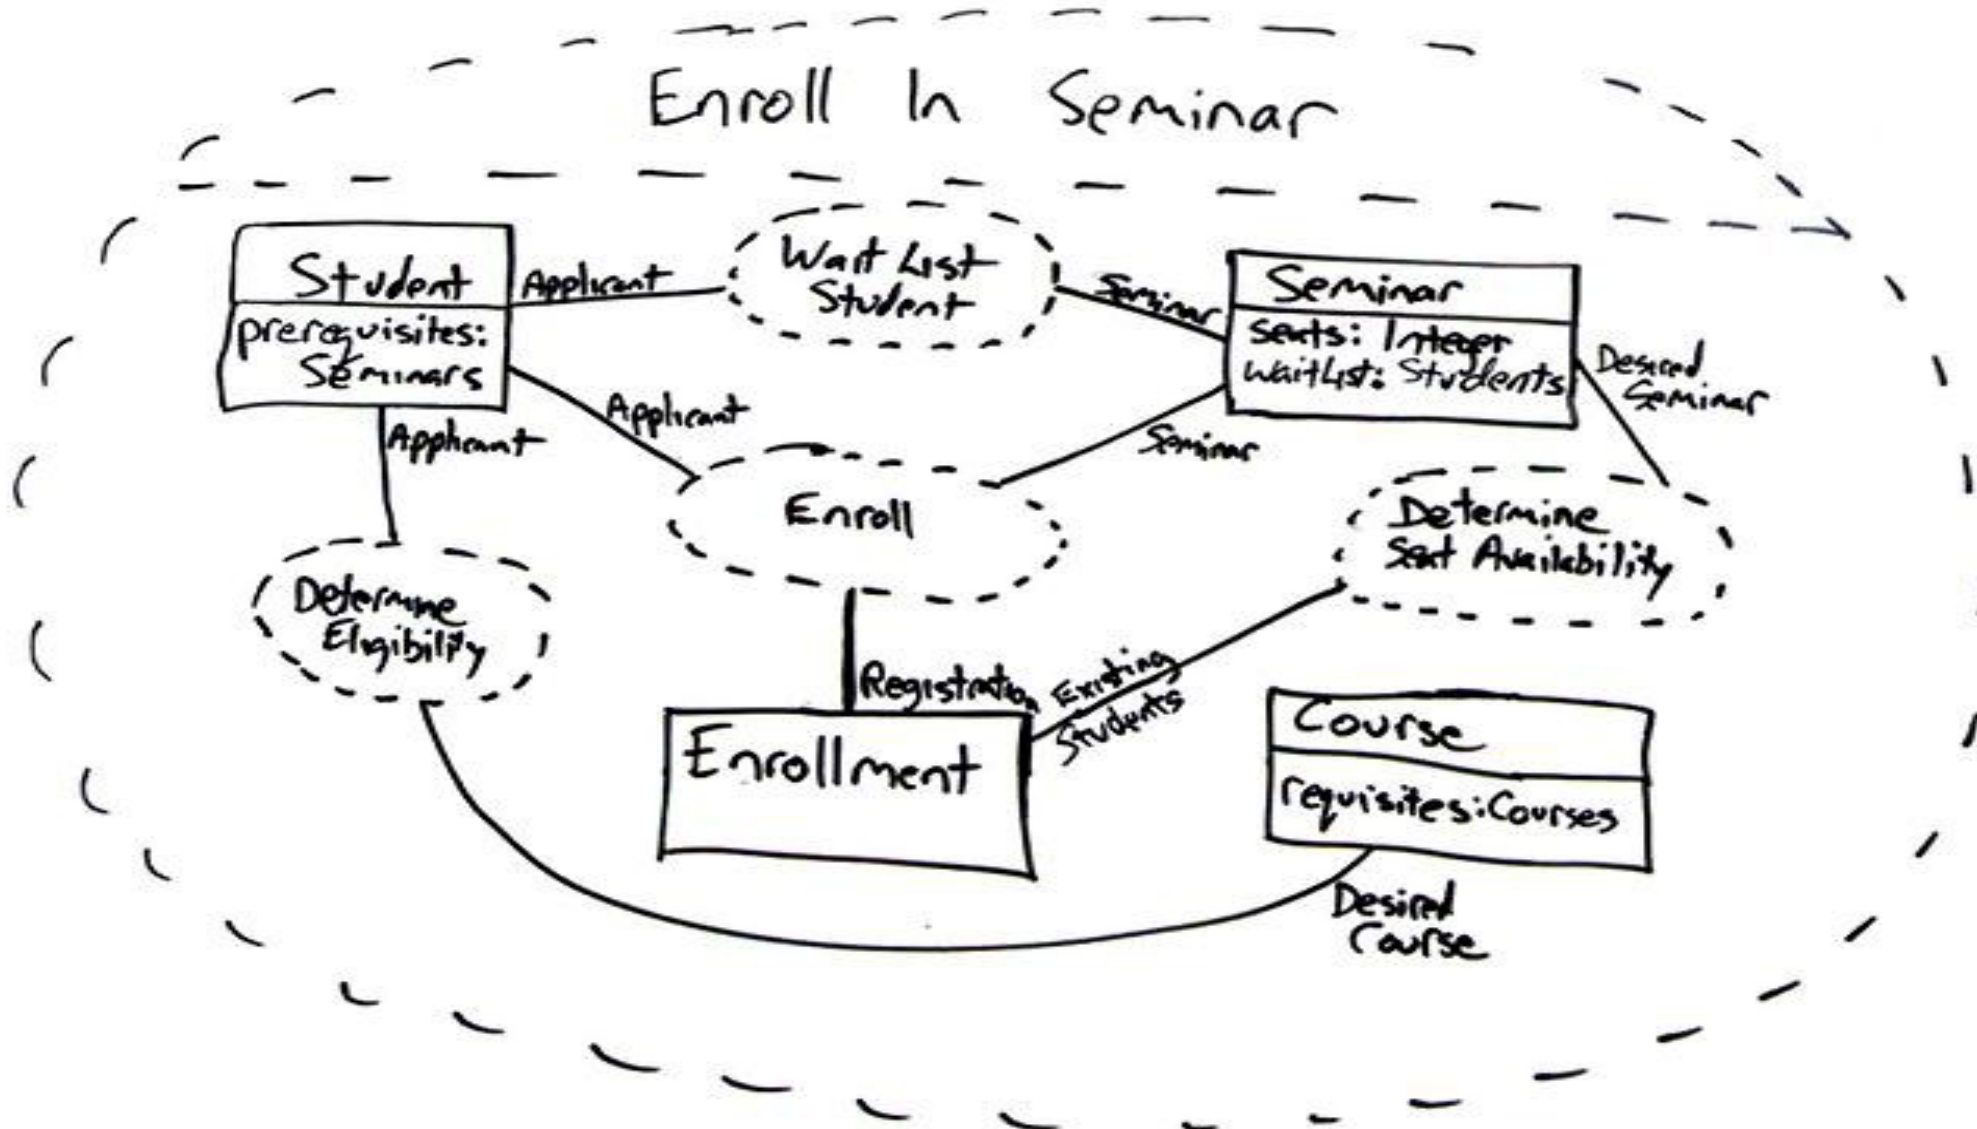 Enroll In Seminar
Student
prerequisites:
Seminars
Applicant
Wait List
Student
Seminar
Seminar
seats: Integer
waitList: Students
Desired
Seminar
Applicant
Applicant
Seminar
Enroll
Determine
Seat Availability
Determine
Eligibility
Registration
Existing
Students
Enrollment
Course
requisites: Courses
Desired
Course